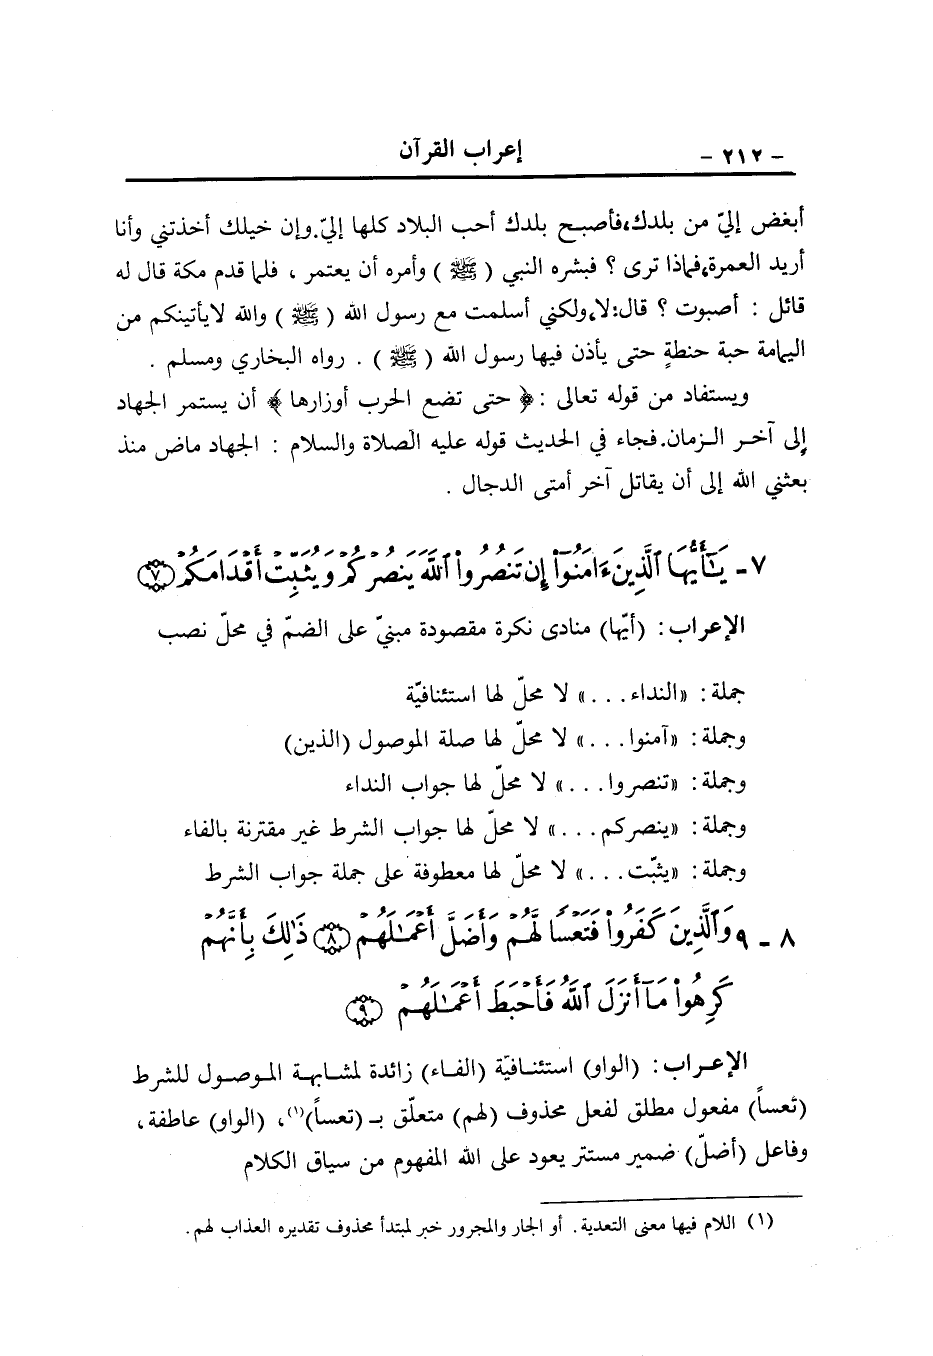 - ٢١٢ -   إعراب القرآن
أبغض إليّ من بلدك، فأصبح بلدك أحب البلاد كلها إليّ. وإن خيلك أخذتني وأنا
أريد العمرة، فماذا ترى ؟ فبشره النبي ( ﷺ ) وأمره أن يعتمر ، فلما قدم مكة قال له
قائل : أصبوت ؟ قال: لا، ولكني أسلمت مع رسول الله ( ﷺ ) والله لا يأتينكم من
اليمامة حبة حنطةٍ حتى يأذن فيها رسول الله ( ﷺ ) . رواه البخاري ومسلم .
ويستفاد من قوله تعالى : ﴿ حتى تضع الحرب أوزارها ﴾ أن يستمر الجهاد
إلى آخر الزمان. فجاء في الحديث قوله عليه الصلاة والسلام : الجهاد ماض منذ
بعثني الله إلى أن يقاتل آخر أمتى الدجال .
٧ - يَٰٓأَيُّهَا ٱلَّذِينَ ءَامَنُوٓا۟ إِن تَنصُرُوا۟ ٱللَّهَ يَنصُرْكُمْ وَيُثَبِّتْ أَقْدَامَكُمْ ﴿٧﴾
الإعراب: (أيّها) منادى نكرة مقصودة مبنيّ على الضمّ في محلّ نصب
جملة: «النداء...» لا محلّ لها استئنافيّة
وجملة: «آمنوا...» لا محلّ لها صلة الموصول (الذين)
وجملة: «تنصروا...» لا محلّ لها جواب النداء
وجملة: «ينصركم...» لا محلّ لها جواب الشرط غير مقترنة بالفاء
وجملة: «يثبّت...» لا محلّ لها معطوفة على جملة جواب الشرط
٨ - ٩ وَٱلَّذِينَ كَفَرُوا۟ فَتَعْسًا لَّهُمْ وَأَضَلَّ أَعْمَٰلَهُمْ ﴿٨﴾ ذَٰلِكَ بِأَنَّهُمْ
كَرِهُوا۟ مَآ أَنزَلَ ٱللَّهُ فَأَحْبَطَ أَعْمَٰلَهُمْ ﴿٩﴾
الإعراب: (الواو) استئنافيّة (الفاء) زائدة لمشابهة الموصول للشرط
(تعساً) مفعول مطلق لفعل محذوف (لهم) متعلّق بـ (تعساً)(١)، (الواو) عاطفة،
وفاعل (أضلّ) ضمير مستتر يعود على الله المفهوم من سياق الكلام
(١) اللام فيها معنى التعدية. أو الجار والمجرور خبر لمبتدأ محذوف تقديره العذاب لهم.